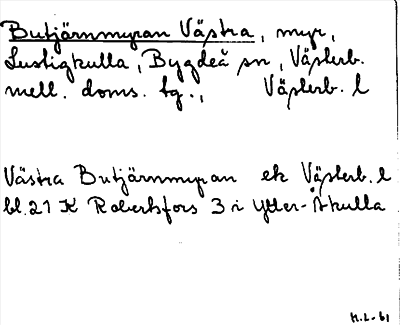 Butjärnmyran Västra, myr,
Lustigkulla, Bygdeå sn, Västerb.
mell. doms. tg., Västerb. l
Västra Butjärnmyran ek Västerb. l
bl. 21 K Robertsfors 3 i Ytter-Åkulla
H.L-61